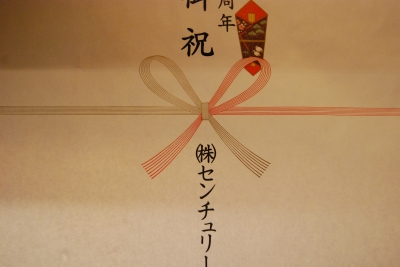 周年
御祝
㈱センチュリー